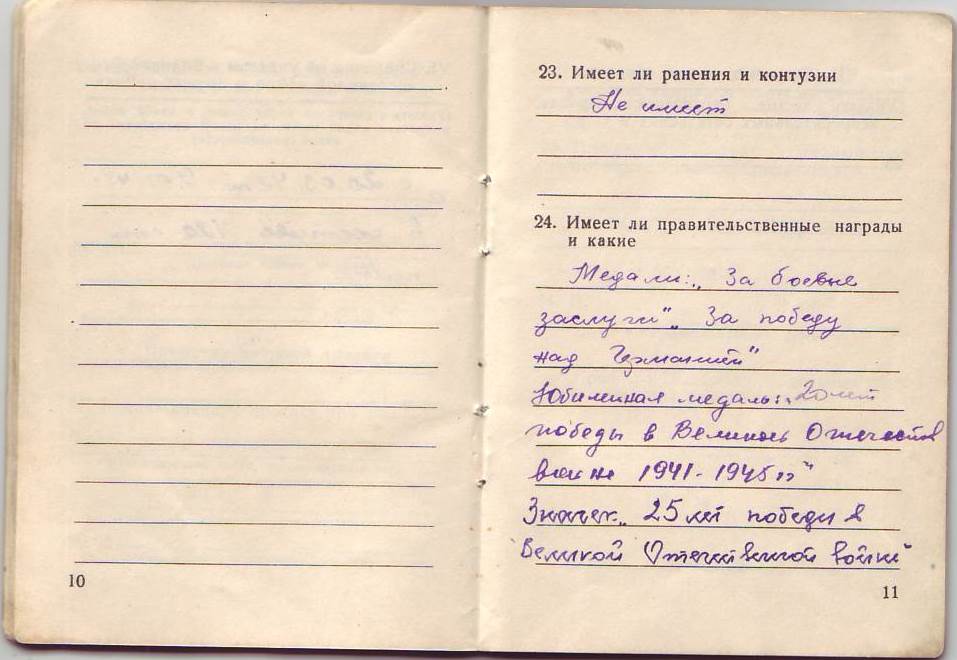 10
23. Имеет ли ранения и контузии
Не имеет
24. Имеет ли правительственные награды
и какие
Медали: „За боевые
заслуги" „За победу
над Германией"
Юбилейная медаль: „20 лет
победы в Великой Отечеств
войне 1941-1945 гг"
Значек „25 лет победы в
Великой Отечественной войне"
11